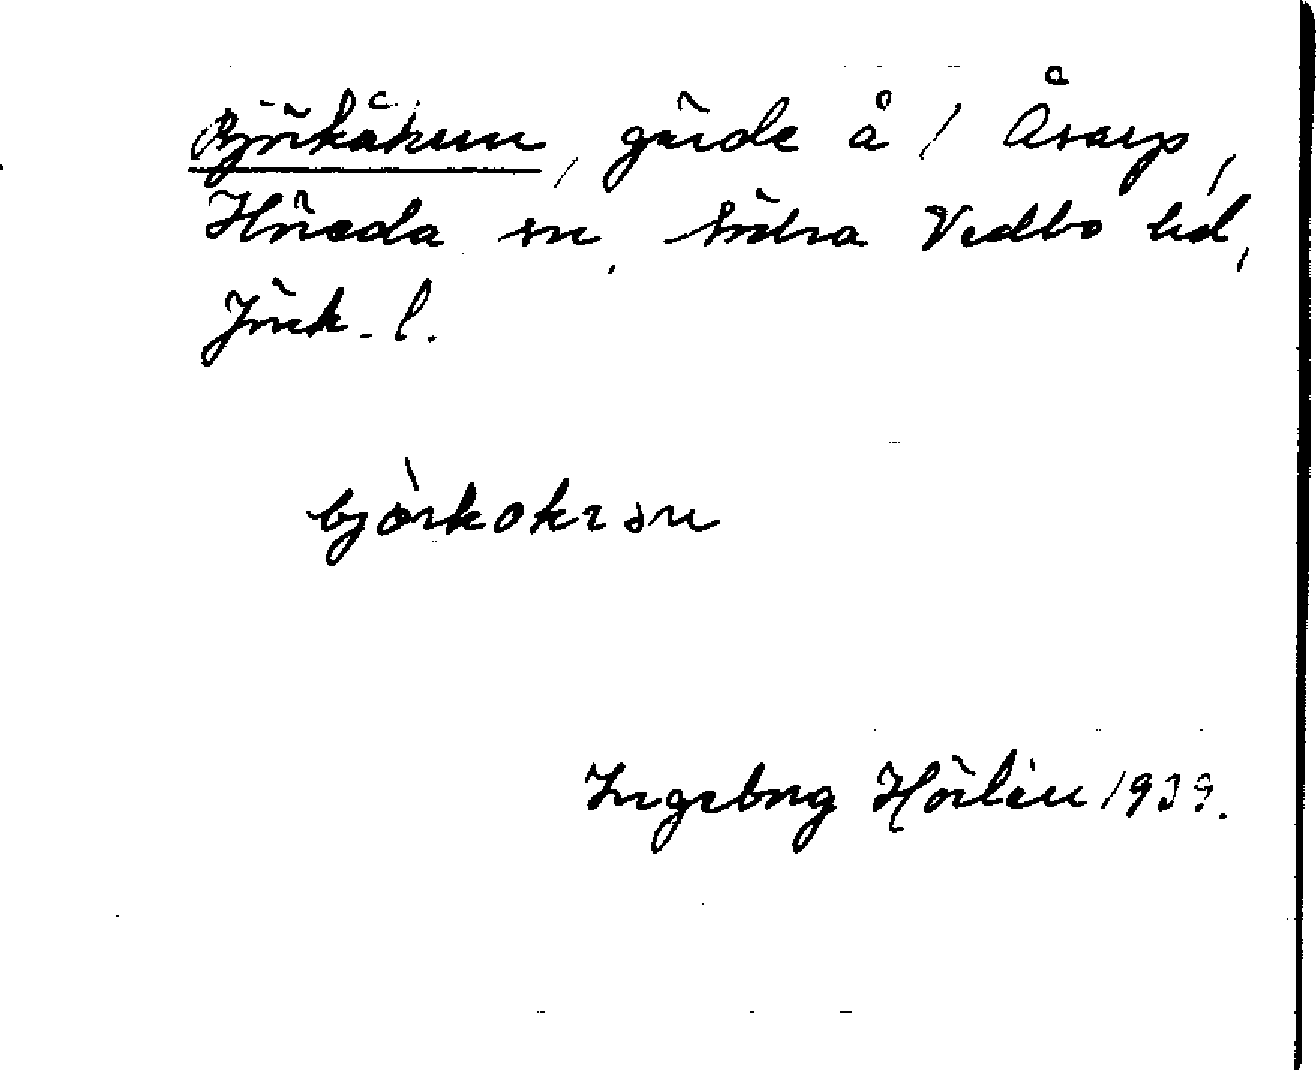 Björkåkern, gärde å / Åsarp,
Häreda sn, Södra Vedbo hd,
Jönk. l.
bjö̀rkokrən
Ingeborg Hörlén 1939.